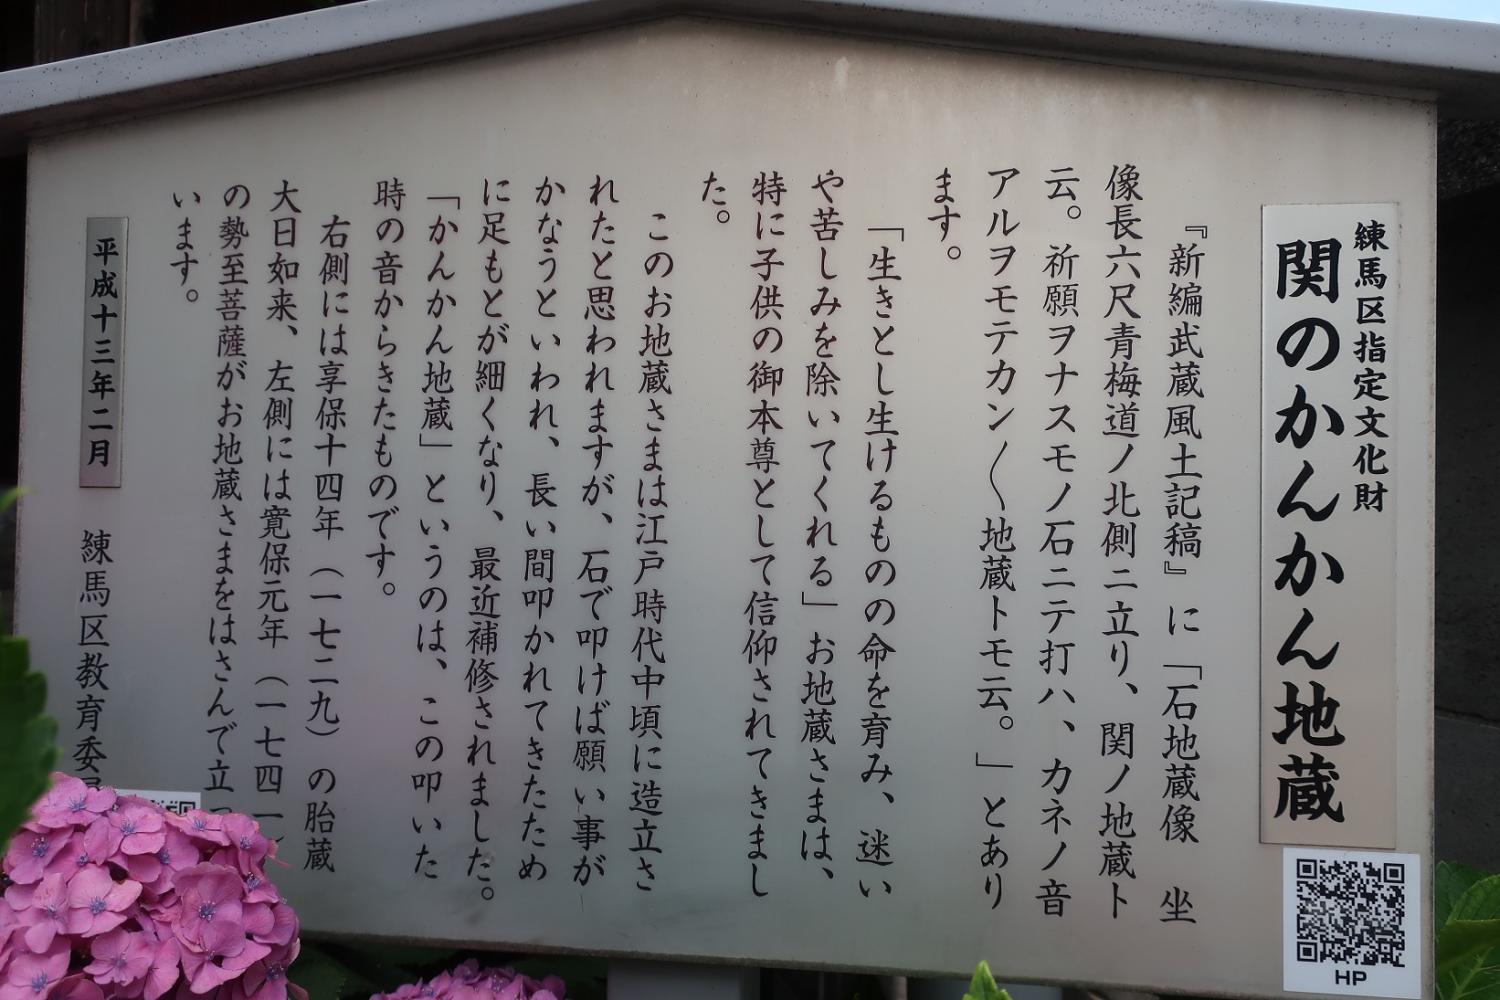 練馬区指定文化財
関のかんかん地蔵
『新編武蔵風土記稿』に「石地蔵像　坐
像長六尺青梅道ノ北側ニ立り、関ノ地蔵ト
云。祈願ヲナスモノ石ニテ打ハ、カネノ音
アルヲモテカン〱地蔵トモ云。」とあり
ます。
「生きとし生けるものの命を育み、迷い
や苦しみを除いてくれる」お地蔵さまは、
特に子供の御本尊として信仰されてきまし
た。
このお地蔵さまは江戸時代中頃に造立さ
れたと思われますが、石で叩けば願い事が
かなうといわれ、長い間叩かれてきたため
に足もとが細くなり、最近補修されました。
「かんかん地蔵」というのは、この叩いた
時の音からきたものです。
右側には享保十四年（一七二九）の胎蔵
大日如来、左側には寛保元年（一七四一）
の勢至菩薩がお地蔵さまをはさんで立っ
います。
平成十三年二月
練馬区教育委
HP